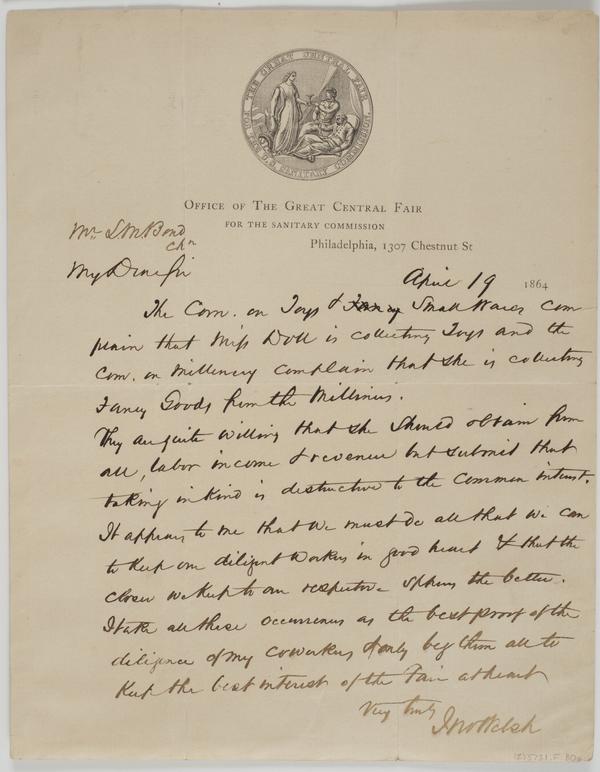 THE GREAT CENTRAL FAIR
FOR THE U.S. SANITARY COMMISSION.
OFFICE OF THE GREAT CENTRAL FAIR
FOR THE SANITARY COMMISSION
Philadelphia, 1307 Chestnut St
Mr L M Bond
Chn
My Dear Sir
April 19 1864
The Com. on Toys & Fancy Small Wares com-
plain that Miss Doll is collecting Toys and the
Com. on Millinery complain that she is collecting
Fancy Goods from the Milliners.
They are quite willing that she should obtain from
all, labor income & revenue but submit that
taking in kind is destructive to the common interest.
It appears to me that we must do all that we can
to keep our diligent workers in good heart & that the
closer we keep to our respective spheres the better.
I take all these occurrences as the best proof of the
diligence of my coworkers & only beg them all to
keep the best interest of the Fair at heart
Very truly
Jno Welsh